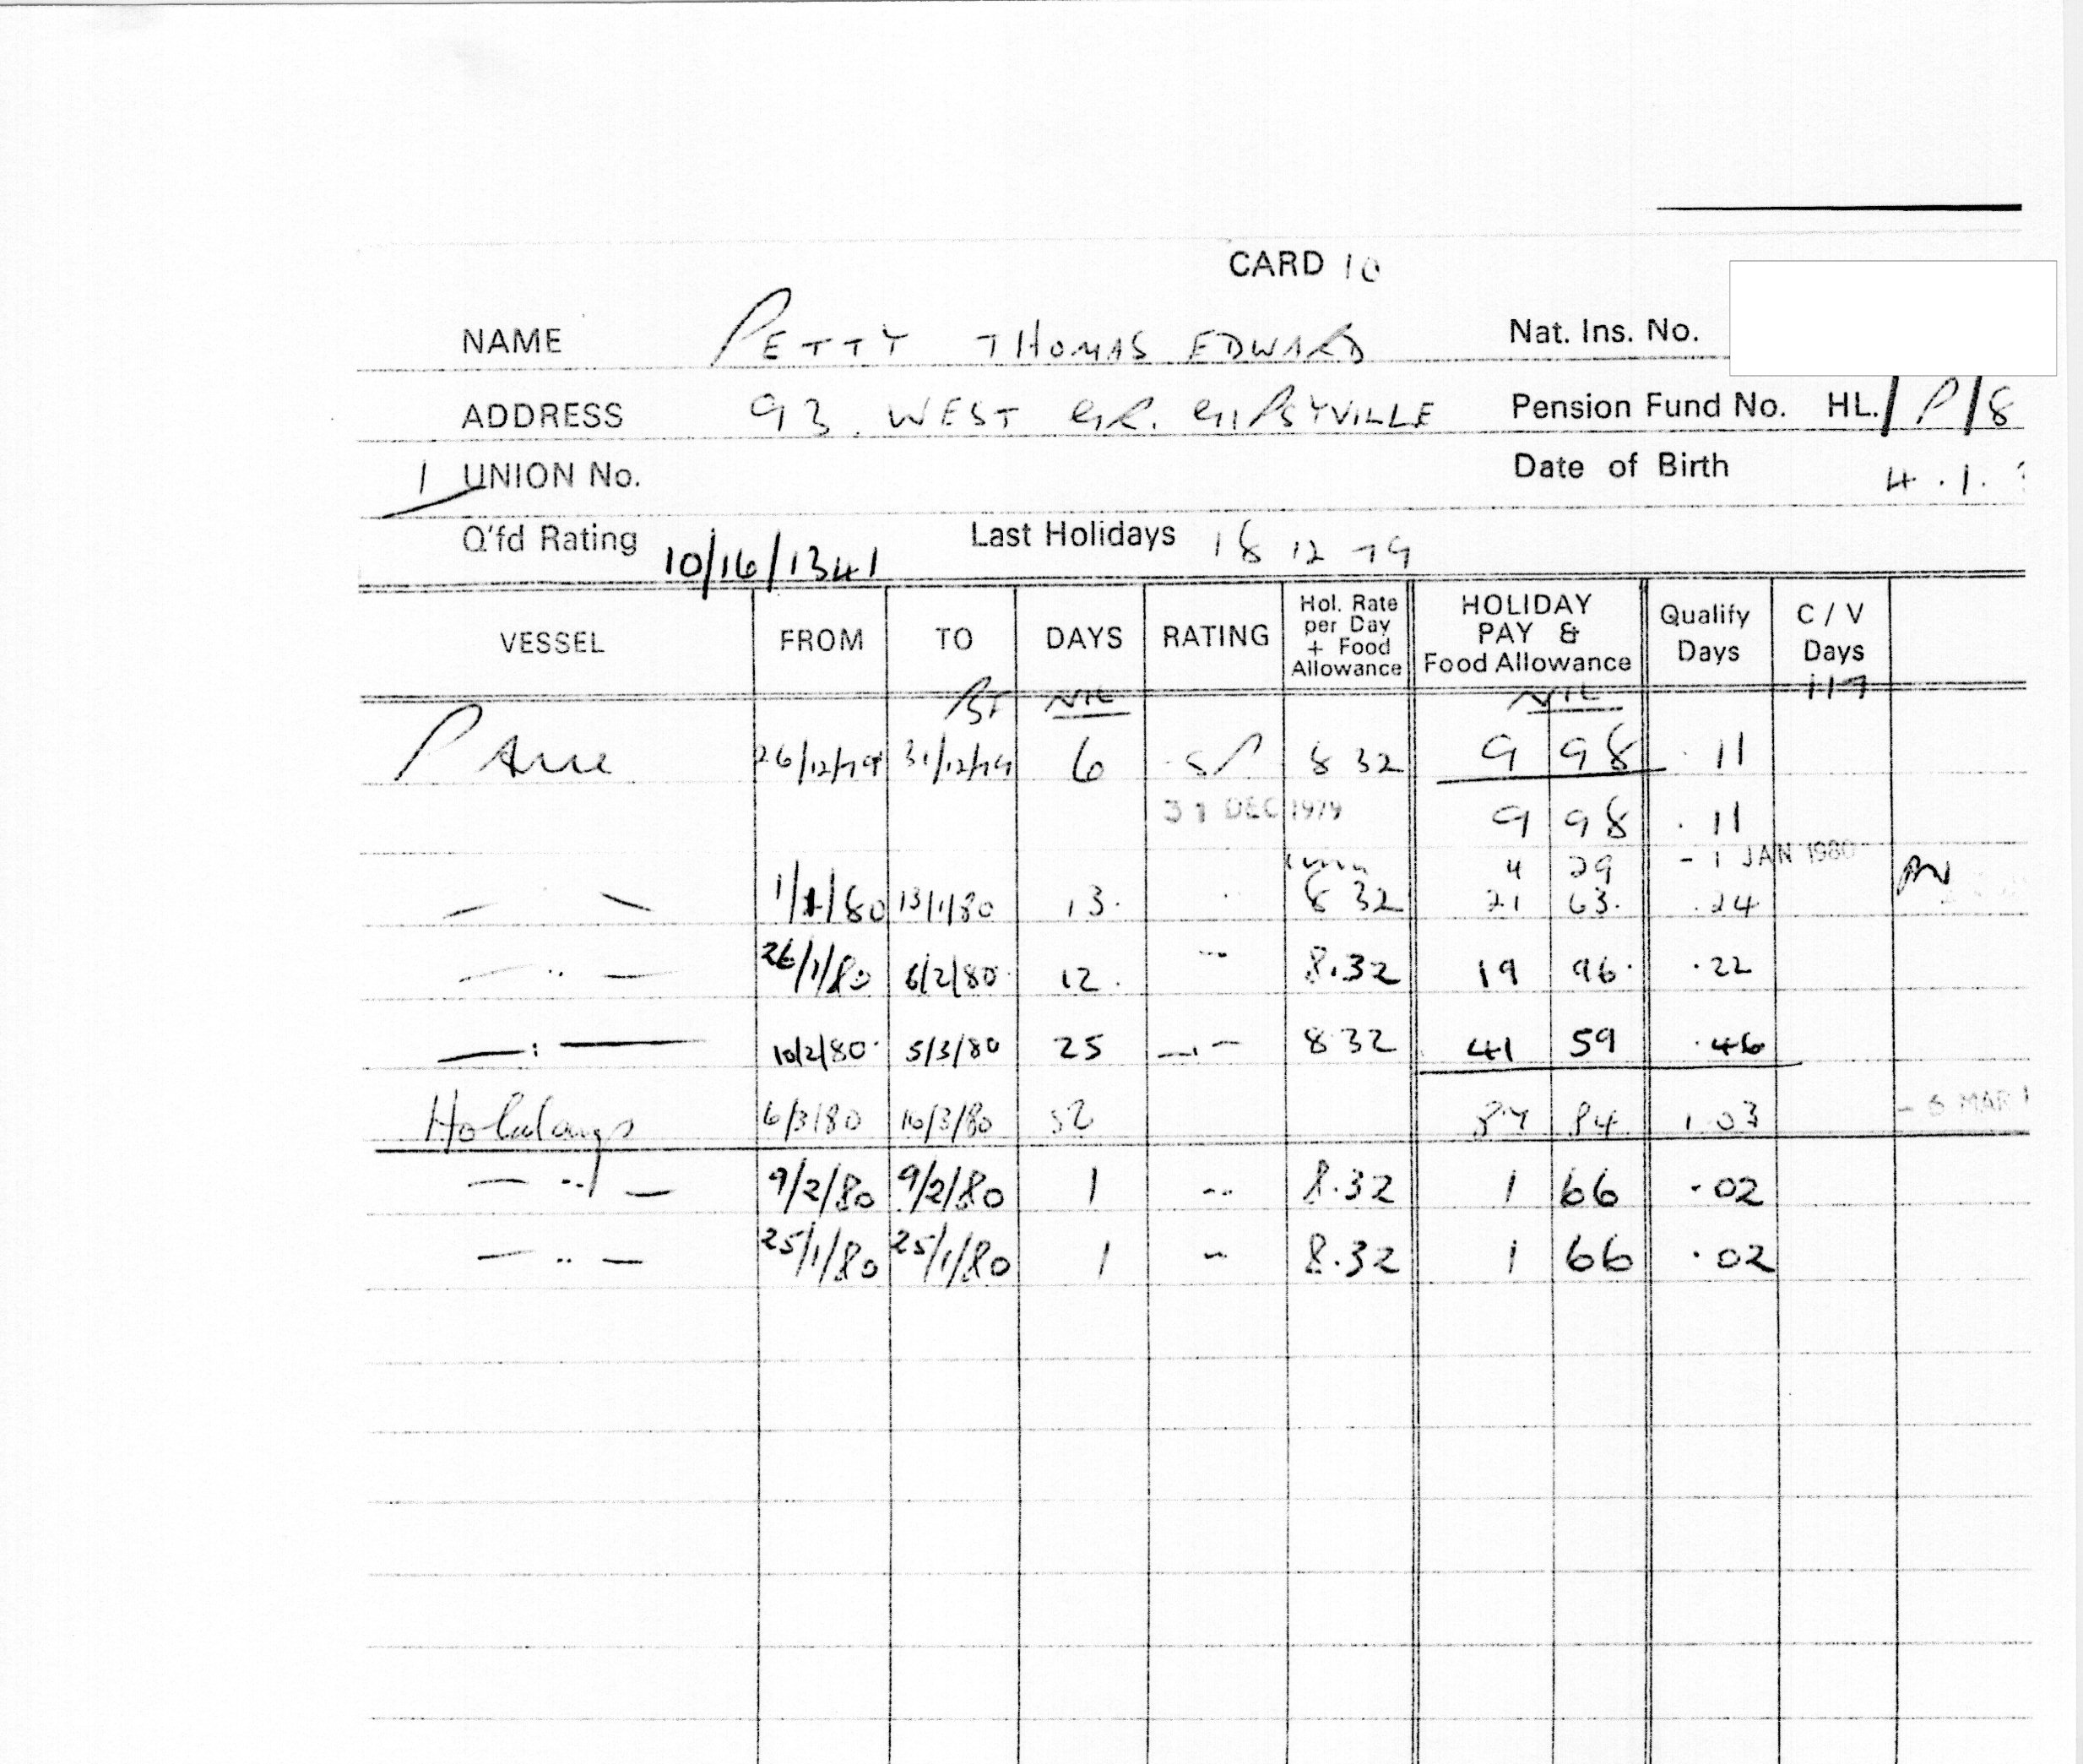 CARD 10
NAME PETTY THOMAS EDWARD Nat. Ins. No.
ADDRESS 93. WEST GR. GIPSYVILLE Pension Fund No. HL./P/8
1 UNION No. Date of Birth 4.1.
Q'fd Rating 10/16/1341 Last Holidays 18 12 79
VESSEL FROM TO DAYS RATING Hol. Rate per Day + Food Allowance HOLIDAY PAY & Food Allowance Qualify Days C / V Days
BF NIL NIL
P 26/12/79 31/12/79 6 SP 8 32 9 98 .11
31 DEC 1979 9 98 .11
4 29 - 1 JAN 1980
1/1/80 13/1/80 13. 8 32 21 63. .24
— .. — 26/1/80 6/2/80. 12. .. 8.32 19 96. .22
— : — 10/2/80. 5/3/80 25 —.— 8 32 41 59 .46
Holidays 6/3/80 10/3/80 52 87 84 1.03 - 6 MAR 1
— .. — 9/2/80 9/2/80 1 .. 8.32 1 66 .02
— .. — 25/1/80 25/1/80 1 .. 8.32 1 66 .02